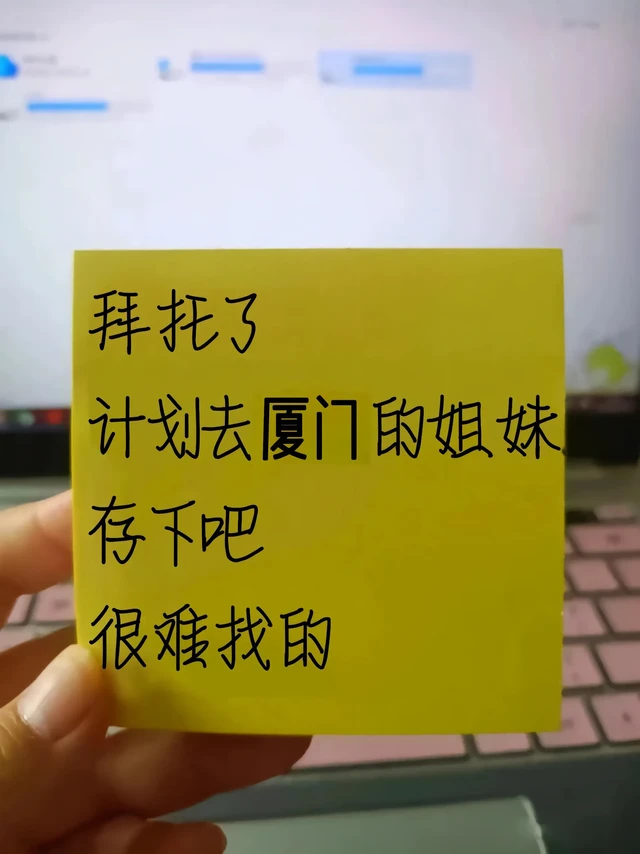 拜托了
计划去厦门的姐妹
存下吧
很难找的